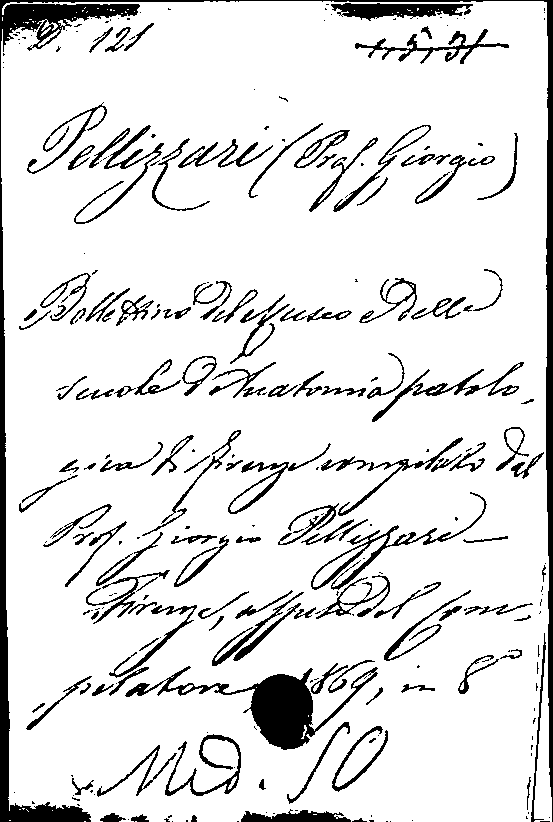 D. 121
1, 5, 31
Pellizzari (Prof. Giorgio)
Bollettino del Museo e delle
scuole d'Anatomia patolo-
gica di Firenze compilato dal
Prof. Giorgio Pellizzari —
Firenze, a spese del Com-
pilatore, 1869, in 8°
Med. 50